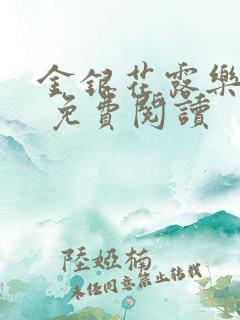 金銀花露樂
免費閱讀
陸婭楠
未經同意禁止轉載